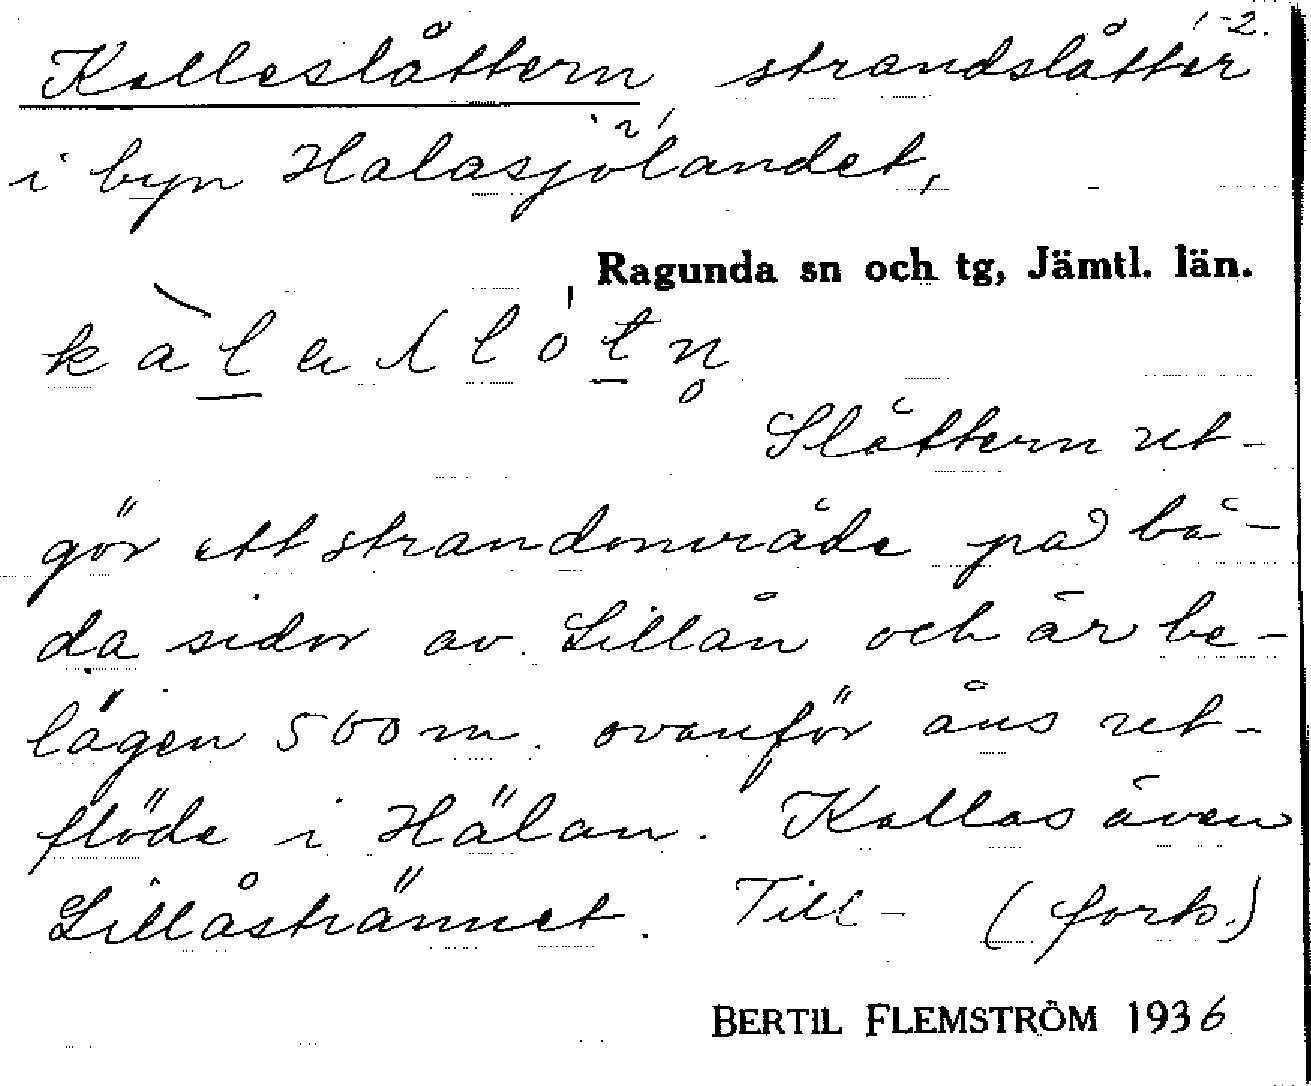 1-2.
Kalleslåttern, strandslåtter
i byn Halasjölandet,
Ragunda sn och tg, Jämtl. län.
Slåttern ut-
gör ett strandområde på bå-
da sidor av Lillån och är be-
lägen 500 m. ovanför åns ut-
flöde i Hälån. Kallas även
Lillåstrännet. Till- (forts.)
BERTIL FLEMSTRÖM 1936